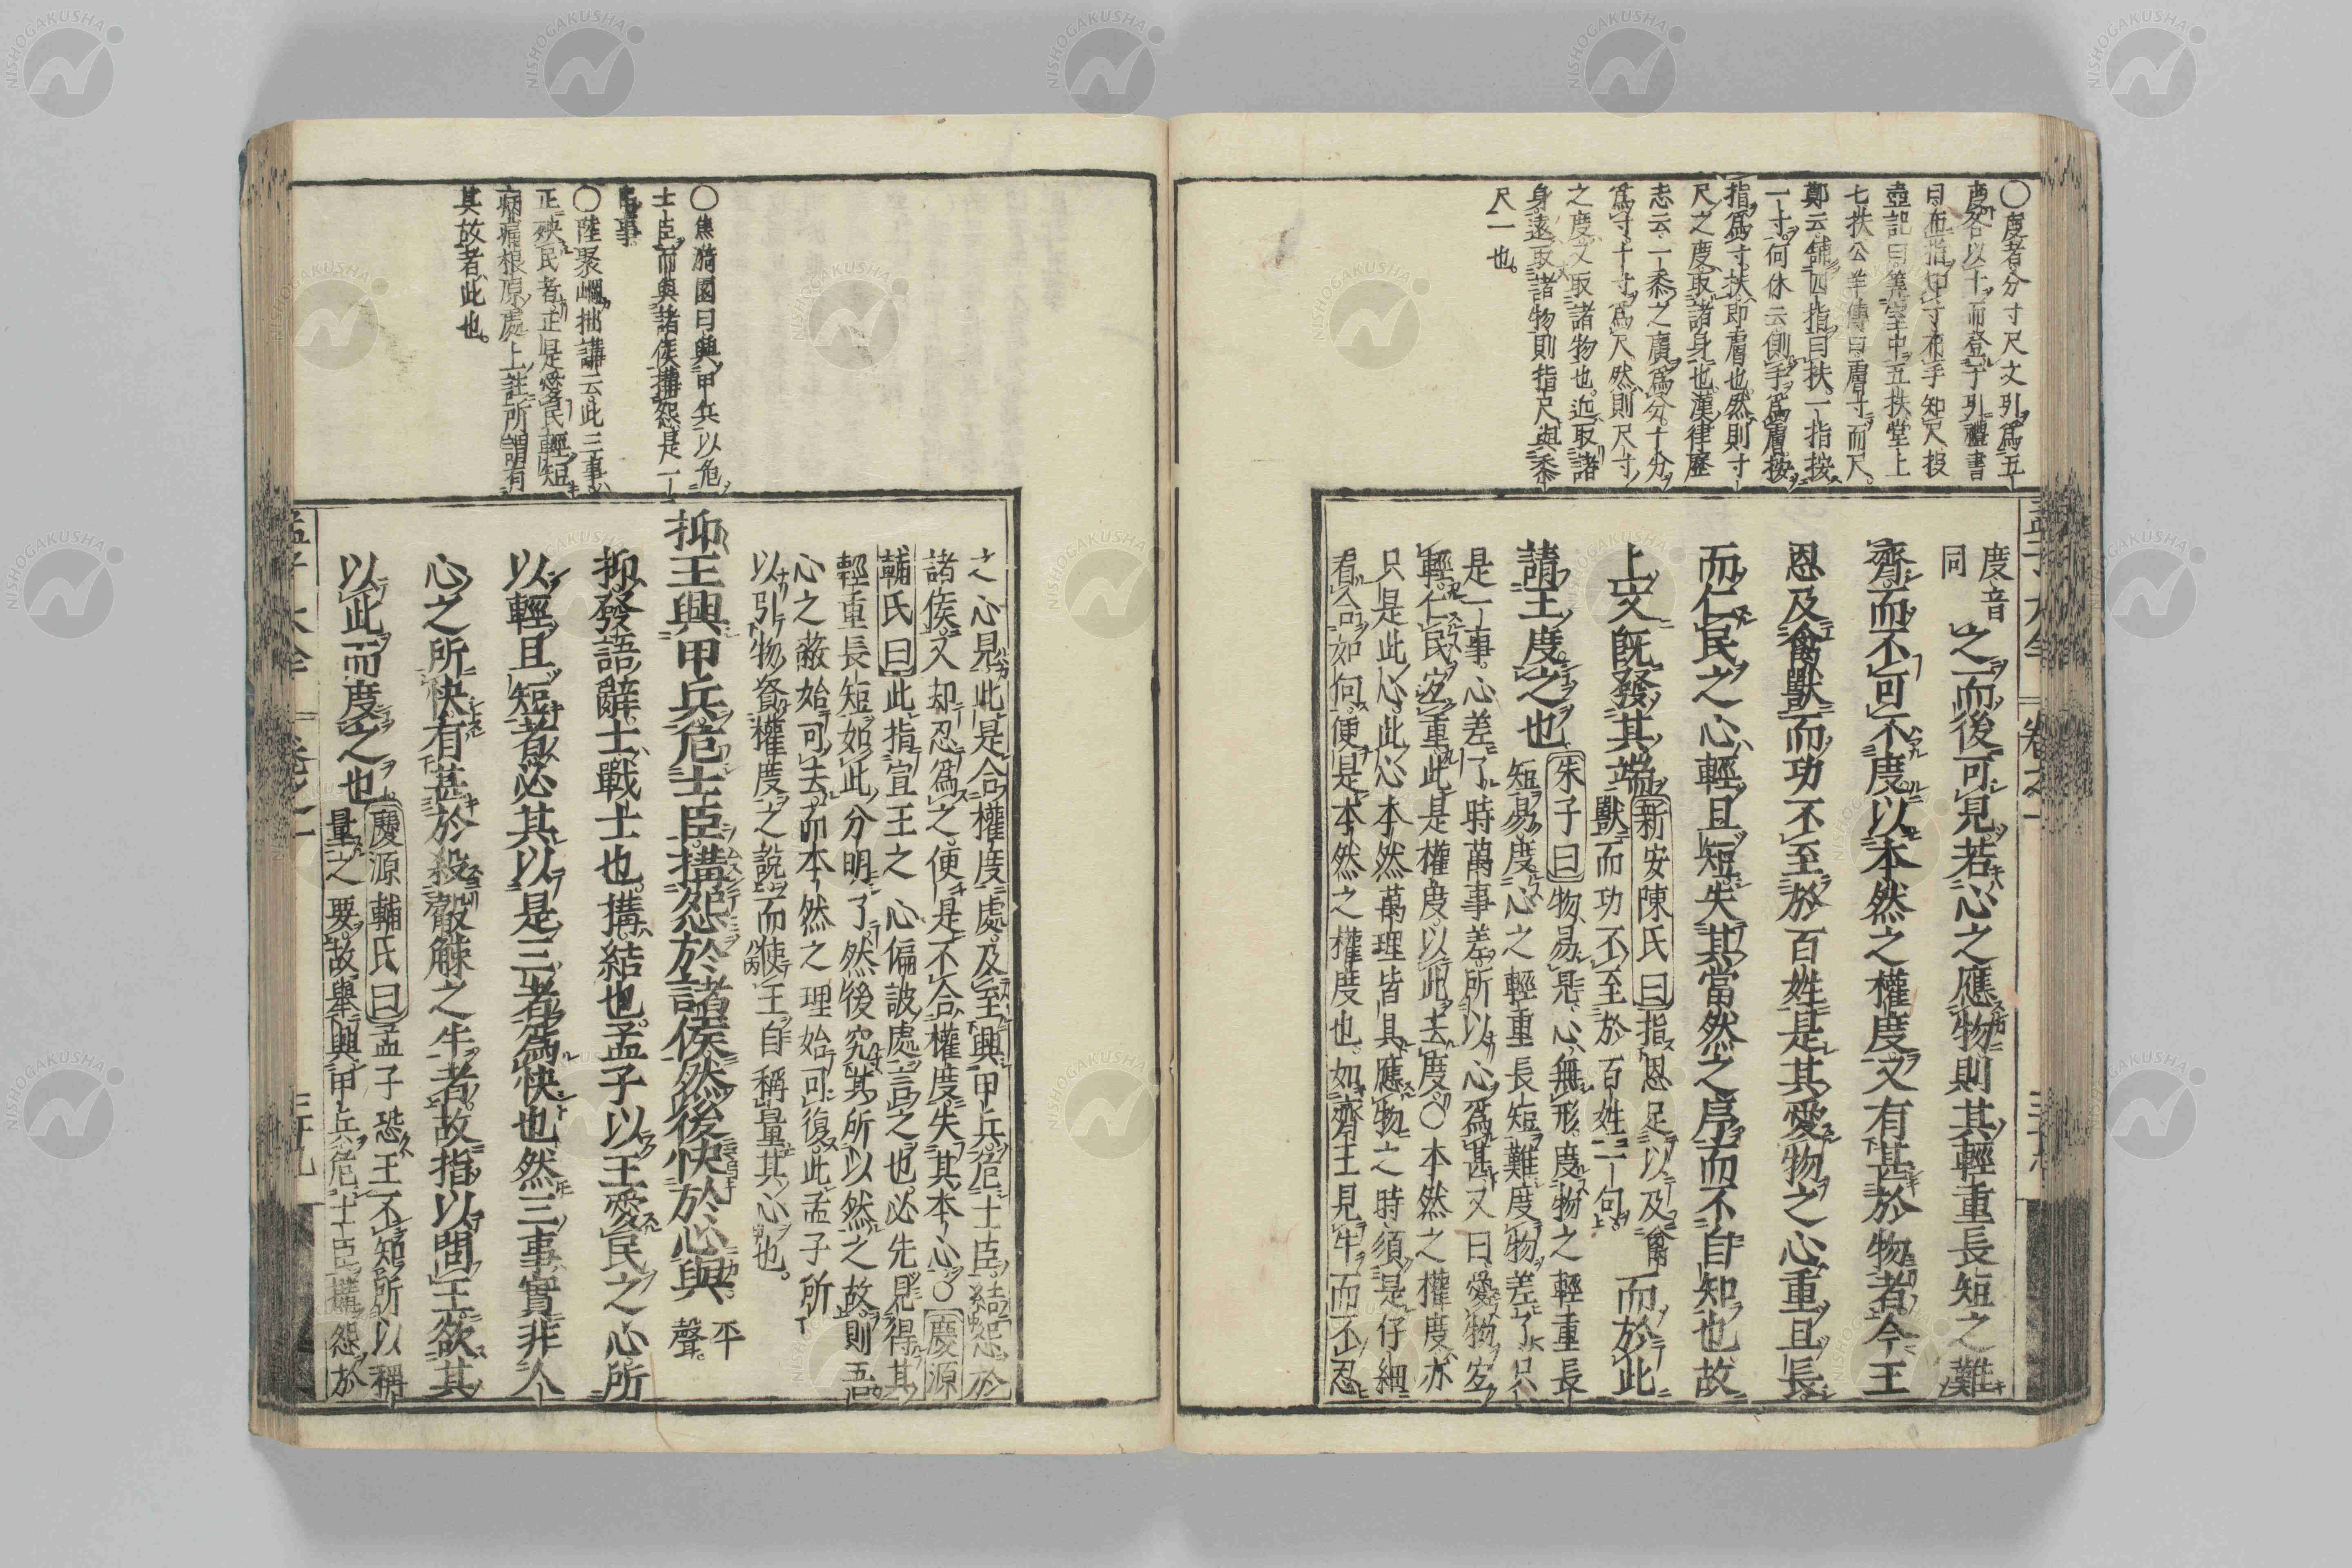 〇度者分寸尺丈引爲五
度各以十而登于引禮書
曰布指知寸布手知尺投
壺記曰籌室中五扶堂上
七扶公羊傳曰膚寸而尺
鄭云舖四指曰扶一指按
一寸何休云側手爲膚按
指爲寸扶即膚也然則寸
尺之度取諸身也漢律歷
志云一黍之廣爲分十分
爲寸十寸爲尺然則尺寸
之度又取諸物也近取諸
身遠取諸物則指尺與黍
尺一也
度音
同
之而後可見若心之應物則其輕重長短之難
齊而不可不度以本然之權度又有甚於物者今王
恩及禽獸而功不至於百姓是其愛物之心重且長
而仁民之心輕且短失其當然之序而不自知也故
上文既發其端
新安陳氏曰指恩足以及禽
獸而功不至於百姓二句
而於此
請王度之也
朱子曰物易見心無形度物之輕重長
短易度心之輕重長短難度物差了只
是一事心差了時萬事差所以心爲甚又曰愛物宜
輕仁民宜重此是權度以此去度〇本然之權度亦
只是此心此心本然萬理皆具應物之時須是仔細
看合如何便是本然之權度也如齊王見牛而不忍
之心見此是合權度處及至興甲兵危士臣結怨於
諸侯又却忍爲之便是不合權度失其本心〇慶源
輔氏曰此指宣王之心偏詖處言之也必先見得其
輕重長短如此分明了然後究其所以然之故則吾
心之蔽始可去而本然之理始可復此孟子所
以引物資權度之說而使王自稱量其心也
〇焦漪園曰興甲兵以危
士臣而與諸侯搆怨是一
串事
〇陸聚岡拙講云此三事
正殃民者正是愛民輕短
病痛根原處上註所謂有
其故者此也
抑王興甲兵危士臣搆怨於諸侯然後快於心與
平
聲
抑發語辭士戰士也搆結也孟子以王愛民之心所
以輕且短者必其以是三者爲快也然三事實非人
心之所快有甚於殺觳觫之牛者故指以問王欲其
以此而度之也
慶源輔氏曰孟子恐王不知所以稱
量之要故舉興甲兵危士臣搆怨於
孟子大全
卷之一